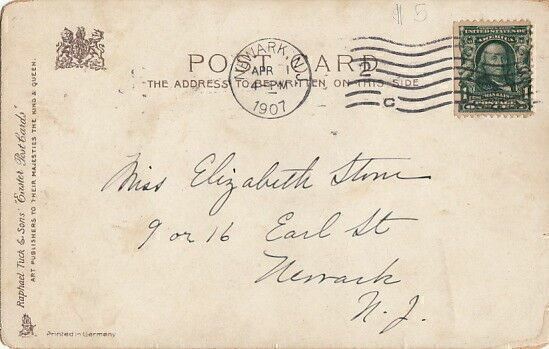 $5
POST CARD
THE ADDRESS TO BE WRITTEN ON THIS SIDE
NEWARK, N.J.
APR 1
4-PM
1907
2
C
UNITED STATES OF
AMERICA
FRANKLIN
POSTAGE
Miss Elizabeth Stone
9 or 16 Earl St
Newark
N. J.
Raphael Tuck & Sons' "Easter Post Cards"
ART PUBLISHERS TO THEIR MAJESTIES THE KING & QUEEN.
Printed in Germany